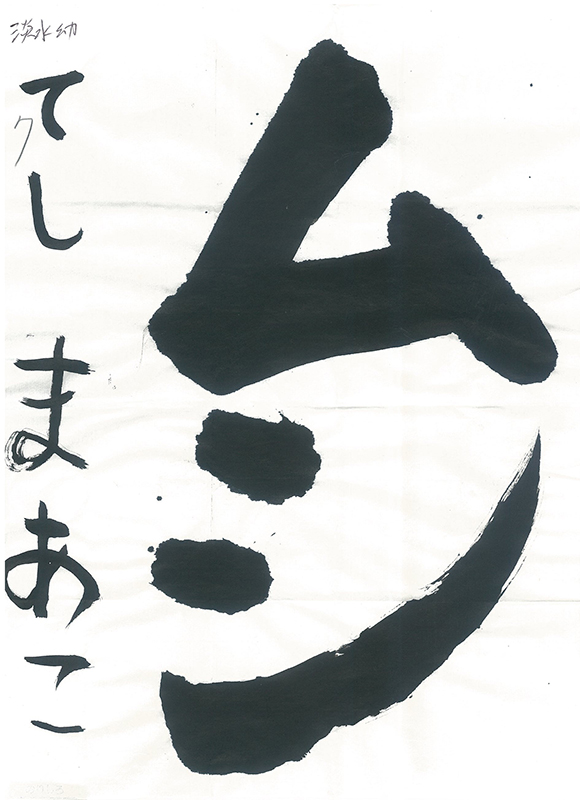 ムシ
淡水幼
てし まあこ